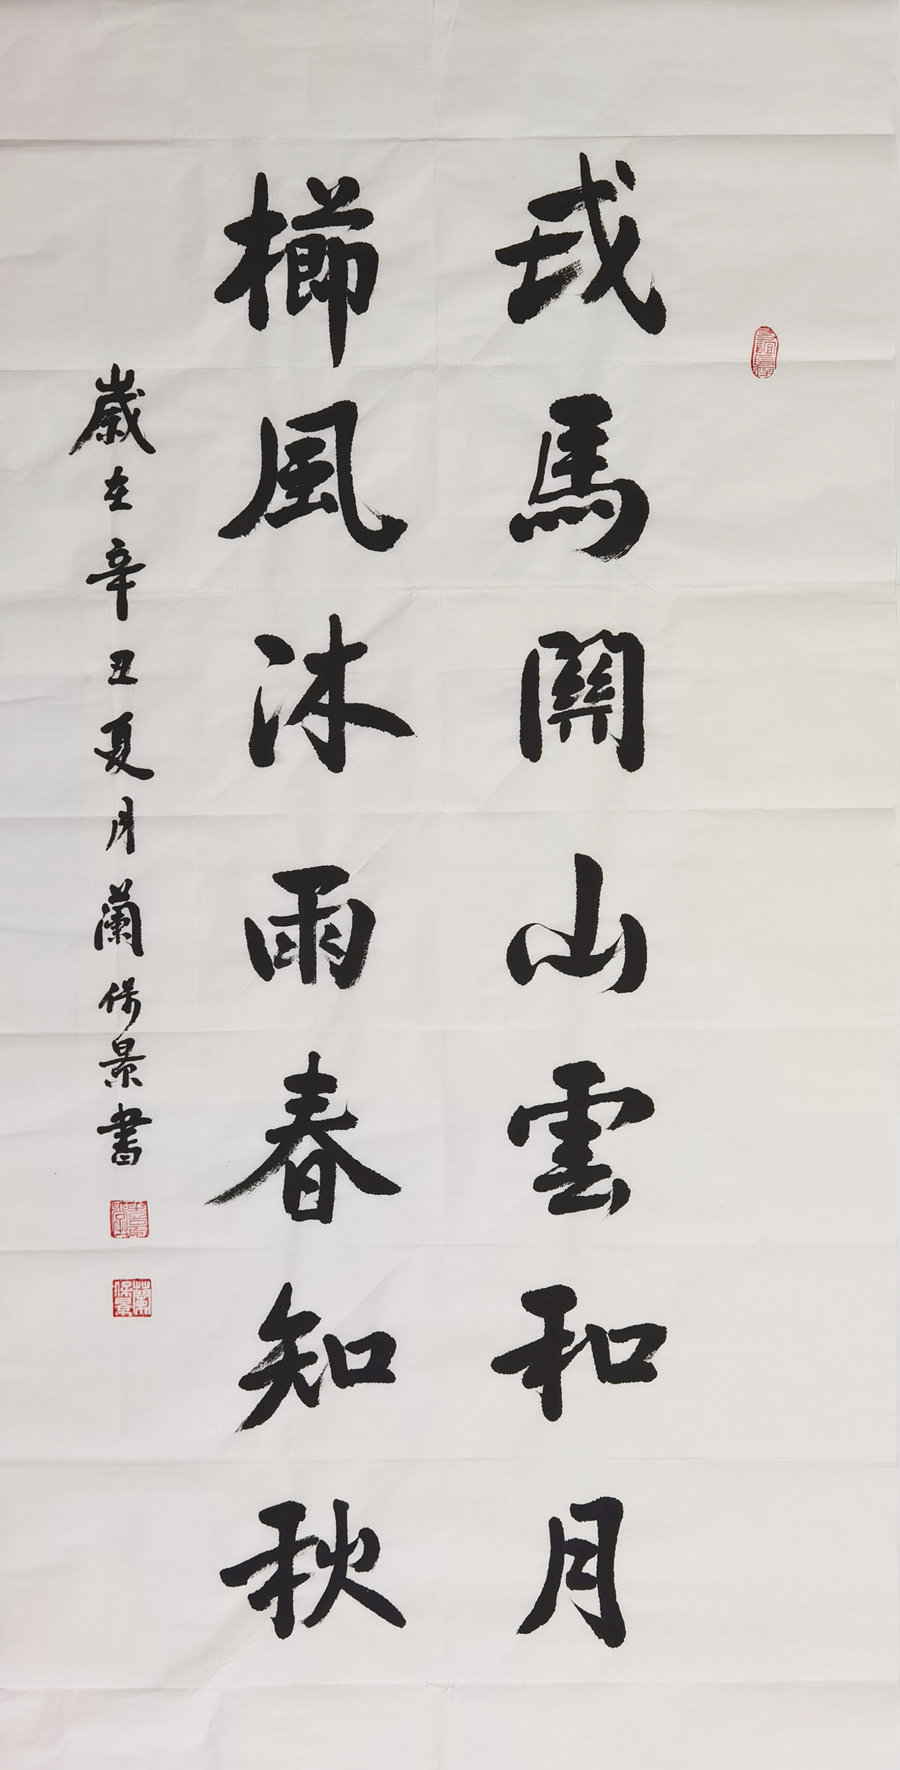 戎馬關山雲和月
櫛風沐雨春知秋
歲在辛丑夏月蘭保景書
蘭保景